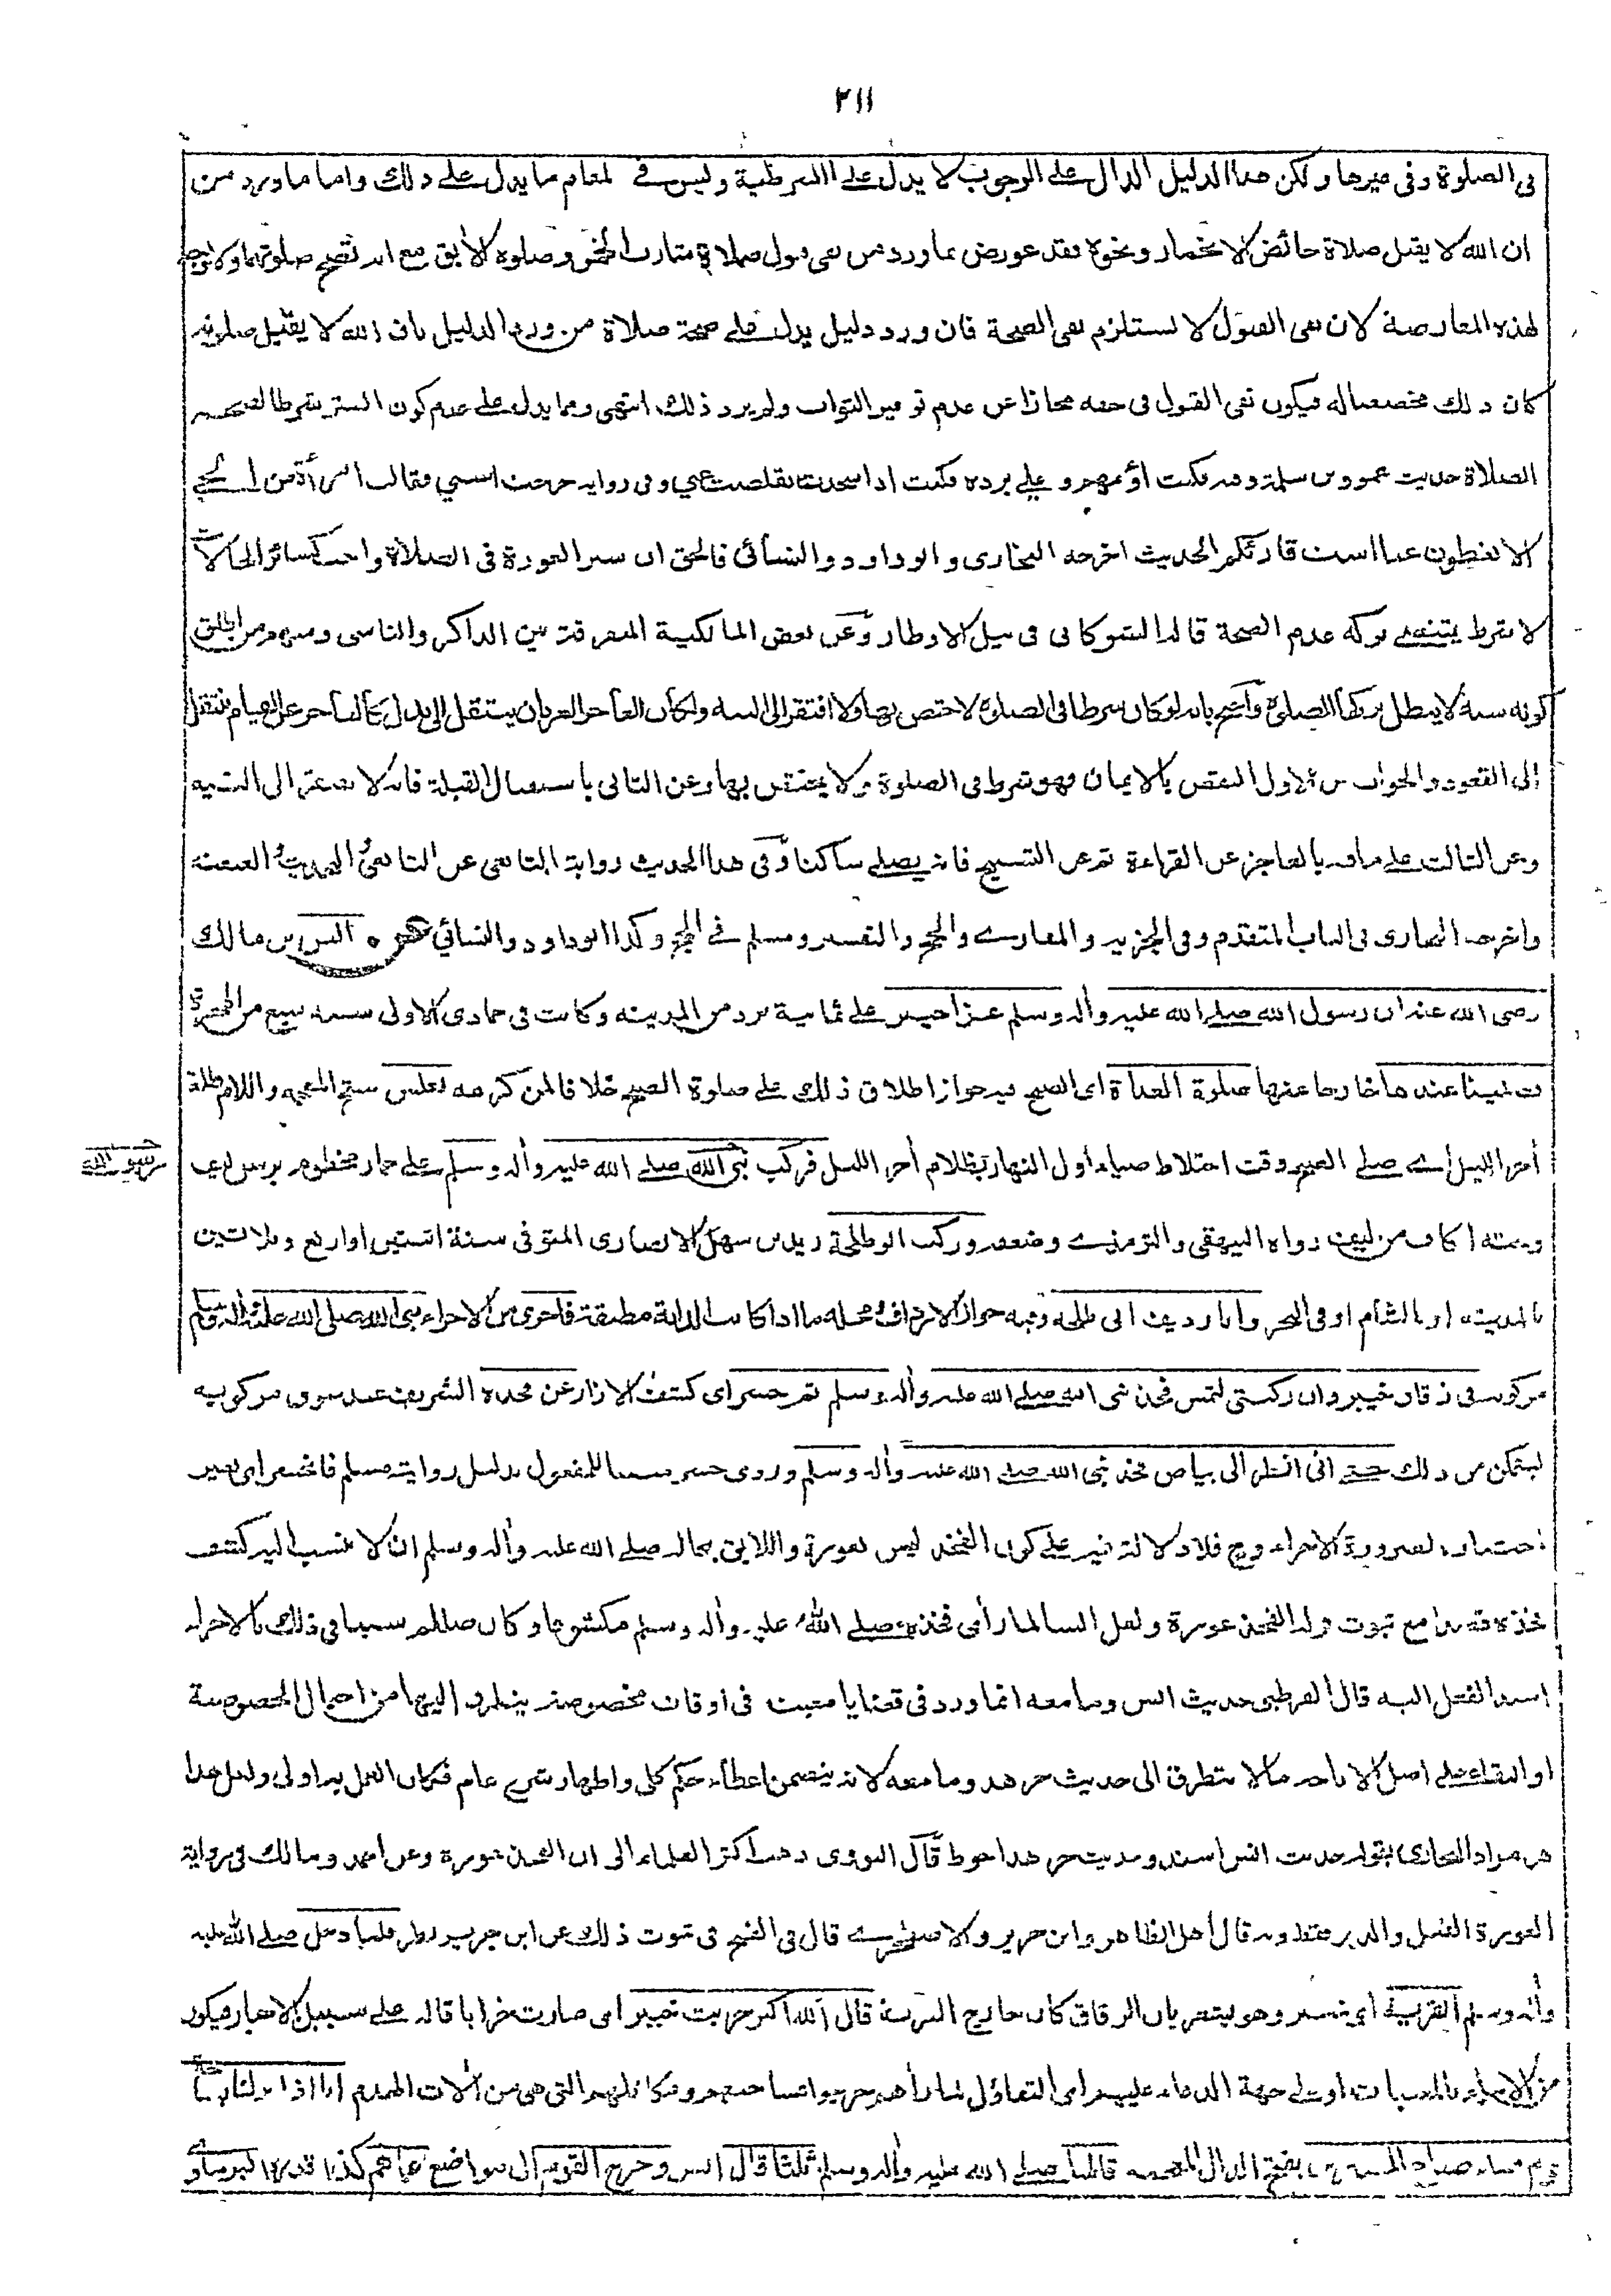 ٢١١
في الصلوة وفي غيرها ولكن هذا الدليل الدال على الوجوب لا يدل على الشرطية وليس في المقام ما يدل على ذلك واما ما ورد من
ان الله لا يقبل صلاة حائض الا بخمار ونحوه فقد عورض بما ورد من نفي قبول صلاة شارب الخمر وصلوة الآبق مع انه تصح صلوتهما ولا وجه
لهذه المعارضة لان نفي القبول لا يستلزم نفي الصحة فان ورد دليل يدل على صحة صلاة من ورد الدليل بان الله لا يقبل صلوته
كان ذلك مخصصا له فيكون نفي القبول في حقه مجازا عن عدم توفير الثواب ولم يرد ذلك انتهى ومما يدل على عدم كون الستر شرطا لصحة
الصلاة حديث عمرو بن سلمة وفيه فكنت اؤمهم وعلي بردة فكنت اذا سجدت تقلصت عني وفي رواية خرجت استي فقالت امرأة من الحي
الا تغطون عنا است قارئكم الحديث اخرجه البخاري وابو داود والنسائي فالحق ان ستر العورة في الصلاة واجب كسائر الحالات
لا شرط يقتضي تركه عدم الصحة قاله الشوكاني في نيل الاوطار وعن بعض المالكية التفرقة بين الذاكر والناسي ومنهم من اطلق
كونه سنة لا يبطل تركها الصلوة واحتج بانه لو كان شرطا في الصلوة لاختص بها ولا افتقر الى النية ولكان العاجز العريان ينتقل الى بدل كالعاجز عن القيام ينتقل
الى القعود والجواب عن الاول النقض بالايمان فهو شرط في الصلوة ولا يختص بها وعن الثاني باستقبال القبلة فانه لا يفتقر الى النية
وعن الثالث على ما فيه بالعاجز عن القراءة ثم عن التسبيح فانه يصلي ساكنا وفي هذا الحديث رواية التابعي عن التابعي التحديث العنعنة
واخرجه البخاري في الباب المتقدم وفي الجزية والمغازي والحج والتفسير ومسلم في الحج وكذا ابو داود والنسائي عن انس بن مالك
رضي الله عنه ان رسول الله صلى الله عليه وآله وسلم غزا خيبر على ثمانية برد من المدينة وكانت في جمادى الاولى سنة سبع من الهجرة
فصلينا عندها خارجا عنها صلوة الغداة اي الصبح فيه جواز اطلاق ذلك على صلوة الصبح خلافا لمن كرهه بغلس بفتح المعجمة واللام ظلمة
آخر الليل اي صلى الصبح وقت اختلاط ضياء اول النهار بظلام آخر الليل فركب نبي الله صلى الله عليه وآله وسلم على حمار مخطوم برسن ليف
وتحته اكاف من ليف رواه البيهقي والترمذي وضعفه وركب ابو طلحة زيد بن سهل الانصاري المتوفى سنة اثنتين او اربع وثلاثين
بالمدينة او بالشام او في البحر وانا رديف ابي طلحة وفيه جواز الارداف ومحله ما اذا كانت الدابة مطيقة فاجرى من الاجراء نبي الله صلى الله عليه وآله وسلم
مركوبه في زقاق خيبر وان ركبتي لتمس فخذ نبي الله صلى الله عليه وآله وسلم ثم حسر اي كشف الازار عن فخذه الشريف عند سوق مركوبه
ليتمكن من ذلك حتى اني انظر الى بياض فخذ نبي الله صلى الله عليه وآله وسلم وروي حسر مبنيا للمفعول بدليل رواية مسلم فانحسر اي بغير
اختياره لضرورة الاجراء وح فلا دلالة فيه على كون الفخذ ليس بعورة واللايق بحاله صلى الله عليه وآله وسلم ان لا ينسب اليه كشف
فخذه قصدا مع ثبوت قوله الفخذ عورة ولعل انسا لما رأى فخذه صلى الله عليه وآله وسلم مكشوفا وكان صللم سببا في ذلك بالاجراء
اسند الفعل اليه قال القرطبي حديث انس وما معه انما ورد في قضايا معينة في اوقات مخصوصة يتطرق اليها من احتمال الخصوصية
او البقاء على اصل الاباحة ما لا يتطرق الى حديث جرهد وما معه لانه يتضمن اعطاء حكم كلي واظهار شرع عام فكان العمل به اولى ولعل هذا
هو مراد البخاري بقوله حديث انس اسند وحديث جرهد احوط قال النووي ذهب اكثر العلماء الى ان الفخذ عورة وعن احمد ومالك في رواية
العورة القبل والدبر فقط وبه قال اهل الظاهر وابن جرير والاصطخري قال في الفتح في ثبوت ذلك عن ابن جرير نظر فلما دخل صلى الله عليه
وآله وسلم القرية اي خيبر وهو يشعر بان الزقاق كان خارج القرية قال الله اكبر خربت خيبر اي صارت خرابا قاله على سبيل الاخبار فيكون
من الانباء بالمغيبات او على جهة الدعاء عليهم اي التفاؤل لما رآهم خرجوا بمساحيهم ومكاتلهم التي هي من آلات الهدم انا اذا نزلنا بساحة
قوم فساء صباح المنذرين بفتح الذال المعجمة قالها صلى الله عليه وآله وسلم ثلثا قال انس وخرج القوم الى مواضع اعمالهم كذا قدره الكرماني و
رسول الله